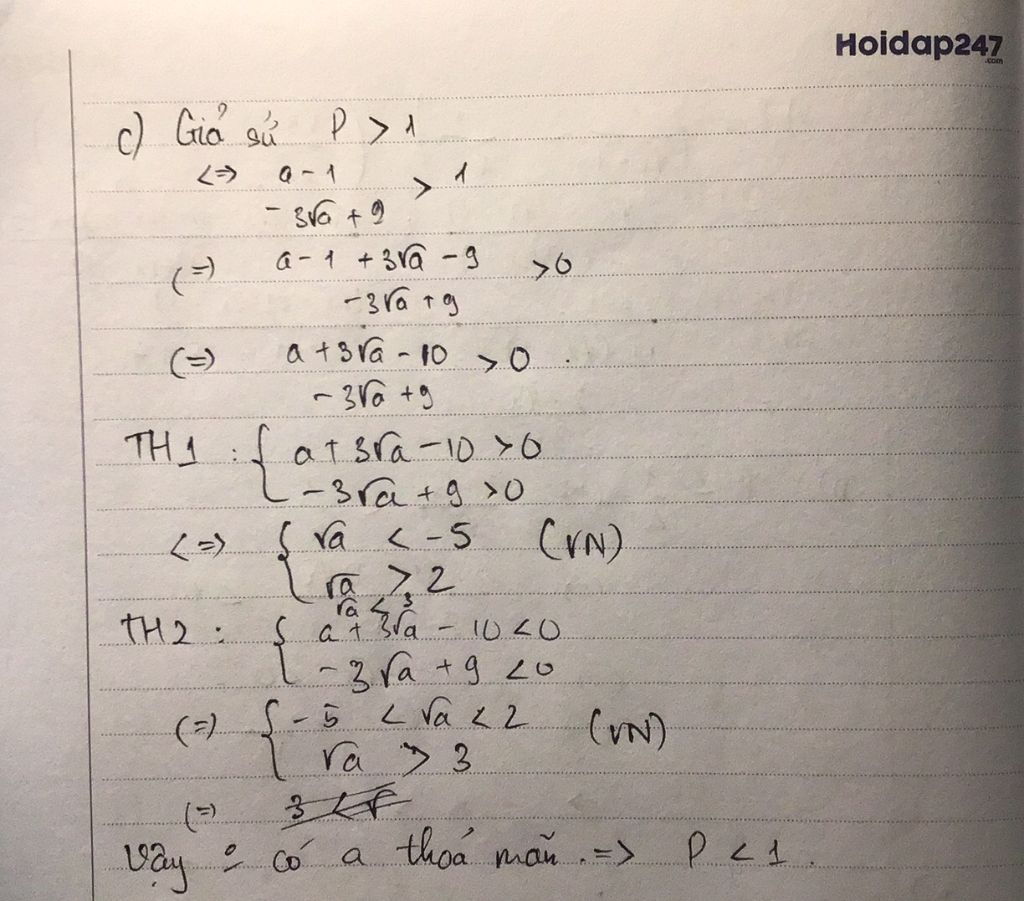 Hoidap247
.com
c) Giả sử P > 1
<=> a - 1 > 1
- 3√a + 9
(=) a - 1 + 3√a - 9 > 0
- 3√a + 9
(=) a + 3√a - 10 > 0 .
- 3√a + 9
TH1 : { a + 3√a - 10 > 0
- 3√a + 9 > 0
<=> { √a < -5 (VN)
√a > 2
√a < 3
TH2 : { a + 3√a - 10 < 0
- 3√a + 9 < 0
(=) { - 5 < √a < 2 (VN)
√a > 3
(=)
Vậy o có a thoả mãn . => P < 1 .